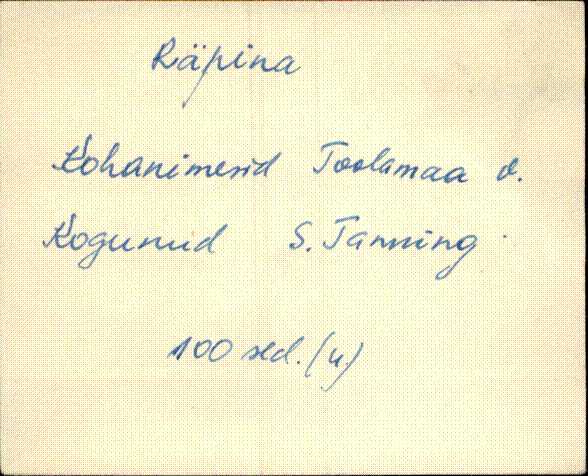 Räpina
Kohanimesid Toolamaa v.
Kogunud S. Tanning
100 sed. (u.)